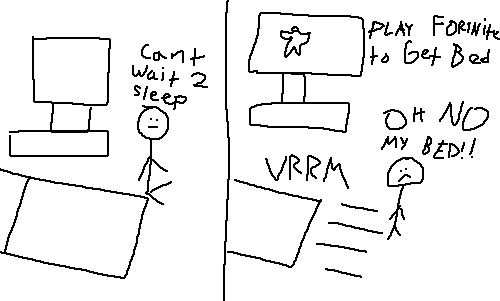 Cant
Wait 2
sleep
PLAY FORINite
to Get Bed
OH NO
MY BED!!
VRRM